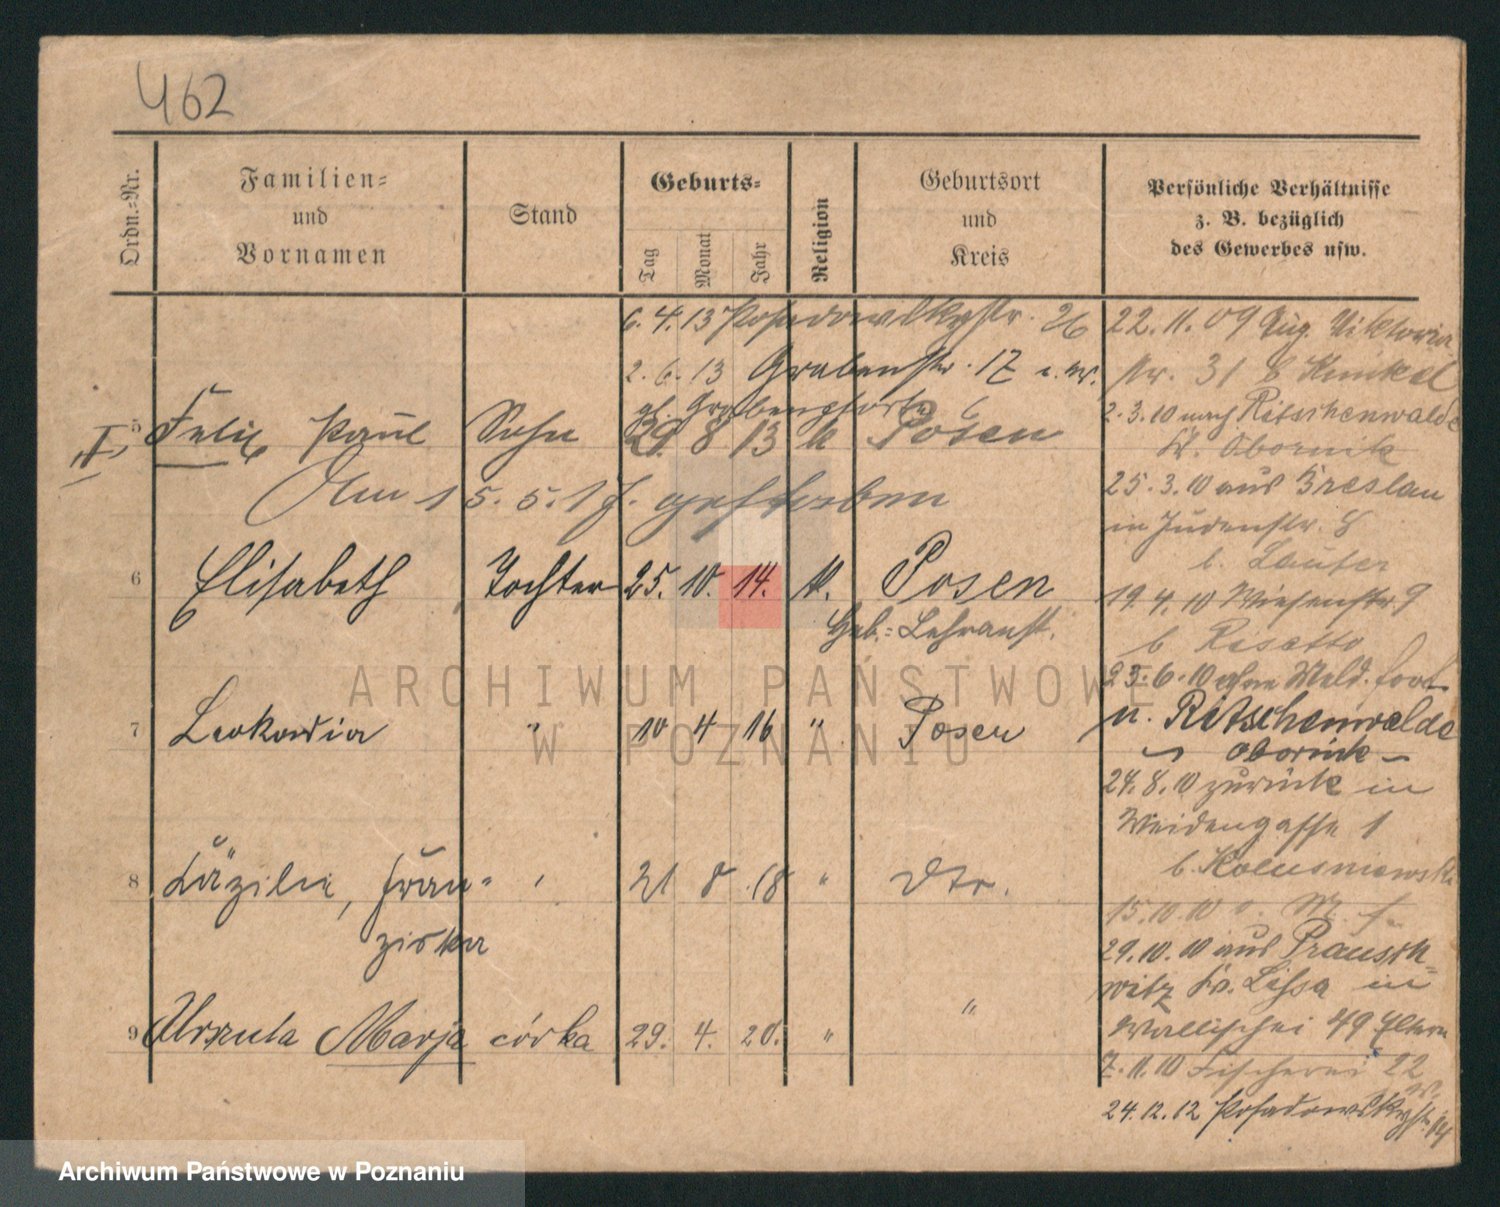 462
Ordn.-Nr.
Familien-
und
Vornamen
Stand
Geburts-
Tag
Monat
Jahr
Religion
Geburtsort
und
Kreis
Persönliche Verhältnisse
z. B. bezüglich
des Gewerbes usw.
6. 4. 13 Posadowskystr. 26
2. 6. 13 Grabenstr. 17
gl. Grabenpforte 6
5 Felix Paul Sohn 29. 8 13 k Posen
Am 15. 5. 17. gestorben
6 Elisabeth Tochter 25. 10. 14. k. Posen
Geb.= Lehranst.
7 Leokadia " 10 4 16 " Posen
8 Cäzilie, Fran- " 21 8 18 " Dto.
ziska
9 Urszula Marja córka 29. 4. 20. " "
22. 11. 09 Aug. Viktoria
str. 31 b Kunkel
2. 3. 10 nach Ritschenwalde
Kr. Obornik
25. 3. 10 aus Breslau
in Judenstr. 8
b. Laufer
19. 4. 10 Wiesenstr. 9
b Risetto
23. 6. 10 ohne Meld. fort
n. Ritschenwalde
Obornik
24. 8. 10 zurück in
Weidengasse 1
b.
15. 10 10 o. M. f.
29. 10. 10 aus Prausch-
witz Kr. Lissa in
Wallischei 49 Eltern
7. 11. 10 Fischerei 22
24. 12. 12 Posadowskystr.
ARCHIWUM PAŃSTWOWE
W POZNANIU
Archiwum Państwowe w Poznaniu